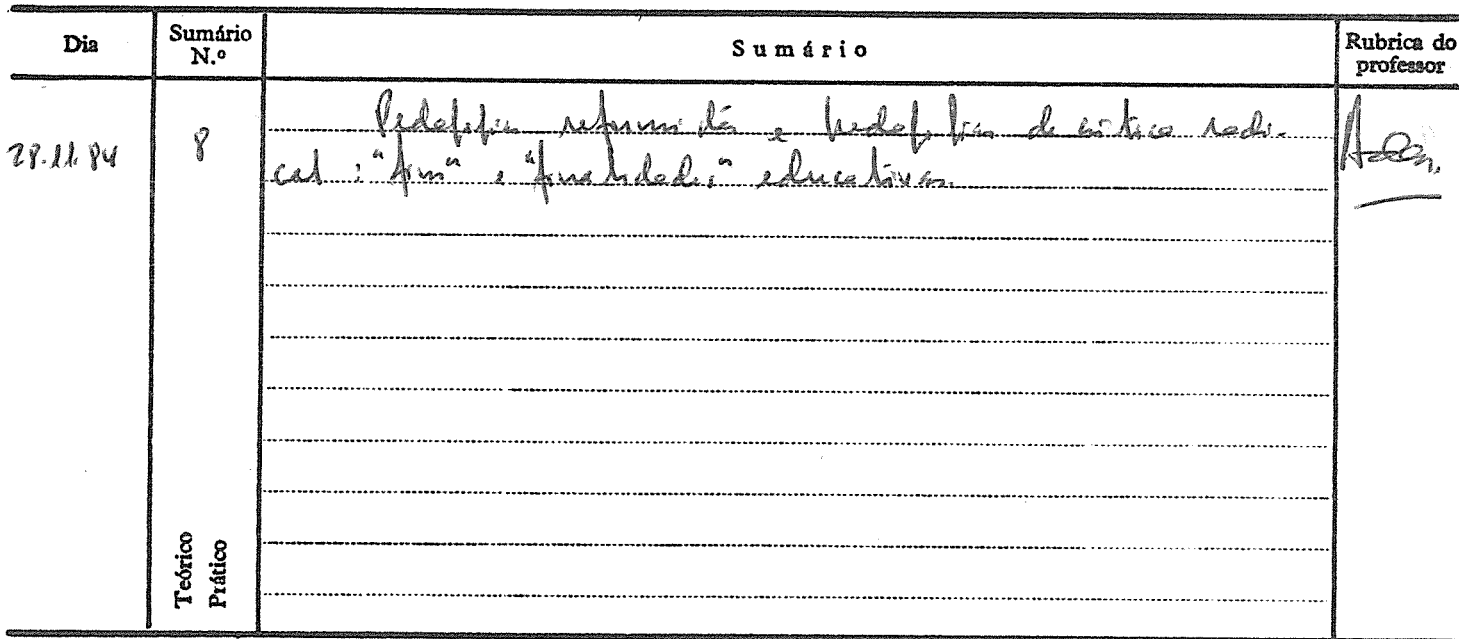 Dia
Sumário N.º
Sumário
Rubrica do professor
28.11.84
8
Pedagogia reformista e pedagogia de crítica radi-
cal: "fins" e "finalidades" educativas.
Teórico
Prático